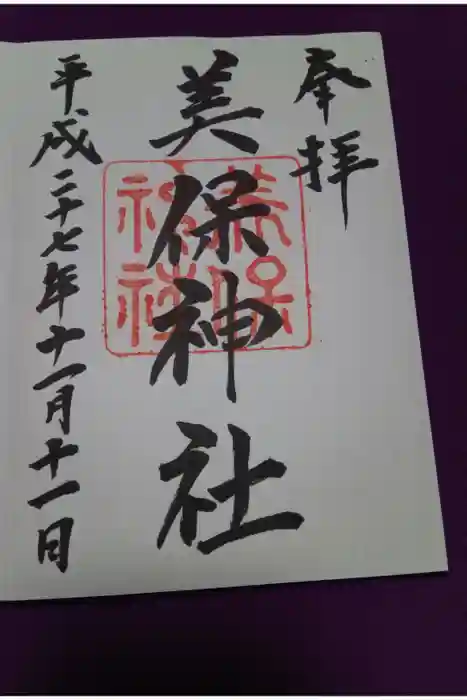 奉拝
美保神社
美保神社
平成二十七年十一月十一日